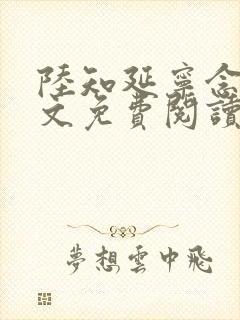 陸知延寧念
文免費閱讀
夢想雲中飛